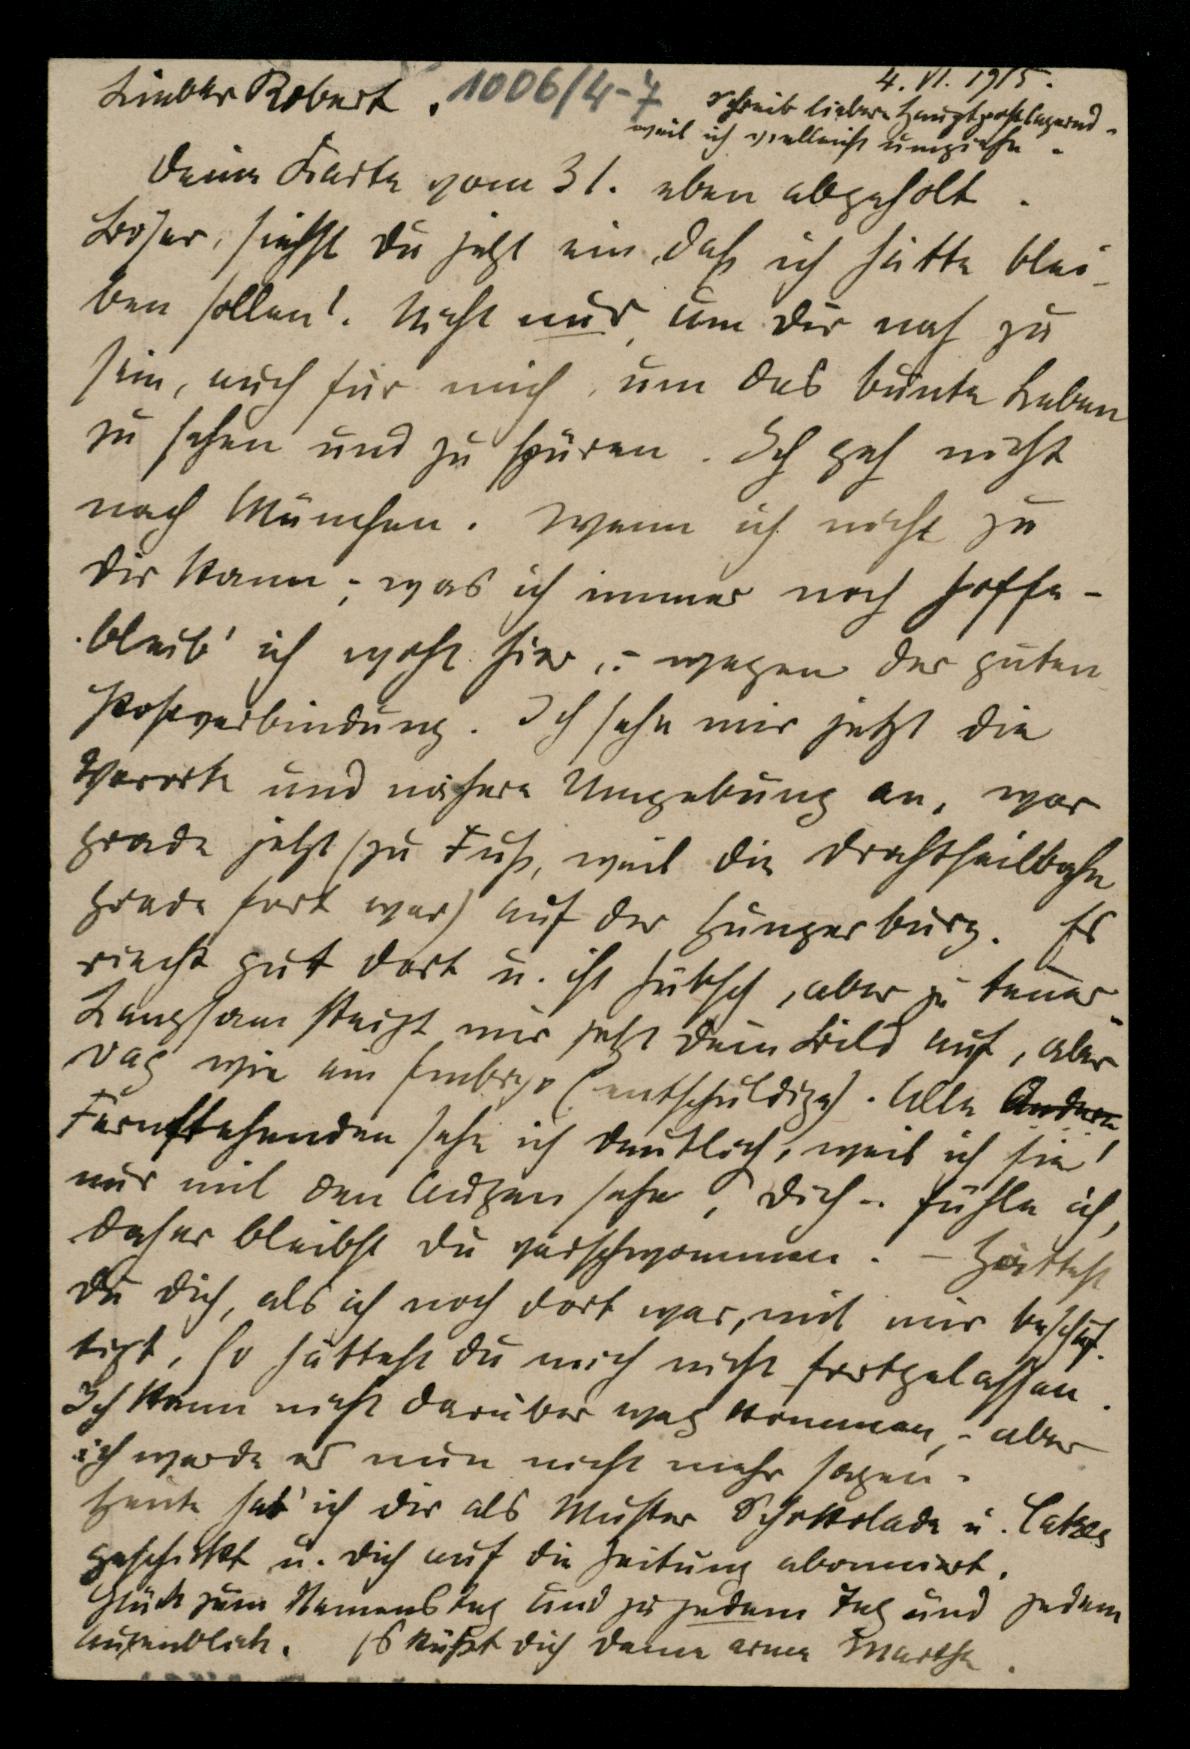 4. VI. 1915.
Lieber Robert. 1006/4-7
Schreib lieber hauptpostlagernd -
weil ich vielleicht umziehe -
Deine Karte vom 31. eben abgeholt.
Böser, siehst du jetzt ein, daß ich hätte blei-
ben sollen! Nicht nur, um dir nah zu
sein, auch für mich, um das bunte Leben
zu sehen und zu spüren. Ich geh nicht
nach München. Wenn ich nicht zu
dir kann, - was ich immer noch hoffe -
bleib' ich wohl hier, - wegen der guten
Postverbindung. Ich sehe mir jetzt die
Vororte und nähere Umgebung an, war
grade jetzt (zu Fuß, weil die Drahtseilbahn
grade fort war) auf der Hungerburg. Es
riecht gut dort u. ist hübsch, aber zu teuer
Langsam steigt mir jetzt dein Bild auf, aber
vag wie ein Embryo (entschuldige). Alle Andern
Fernstehenden sehe ich deutlich, weil ich sie
nur mit den Augen sehe, dich - fühle ich,
daher bleibst du verschwommen. - Hättest
du dich, als ich noch dort war, mit mir beschäf-
tigt, so hättest du mich nicht fortgelassen.
Ich kann nicht darüber weg kommen, - aber
ich werde es nun nicht mehr sagen.
Heute hab' ich dir als Muster Schokolade u. Cakes
geschickt u. dich auf die Zeitung abonniert.
Glück zum Namenstag und zu jedem Tag und jedem
Augenblick. Es küßt dich deine arme Martha.